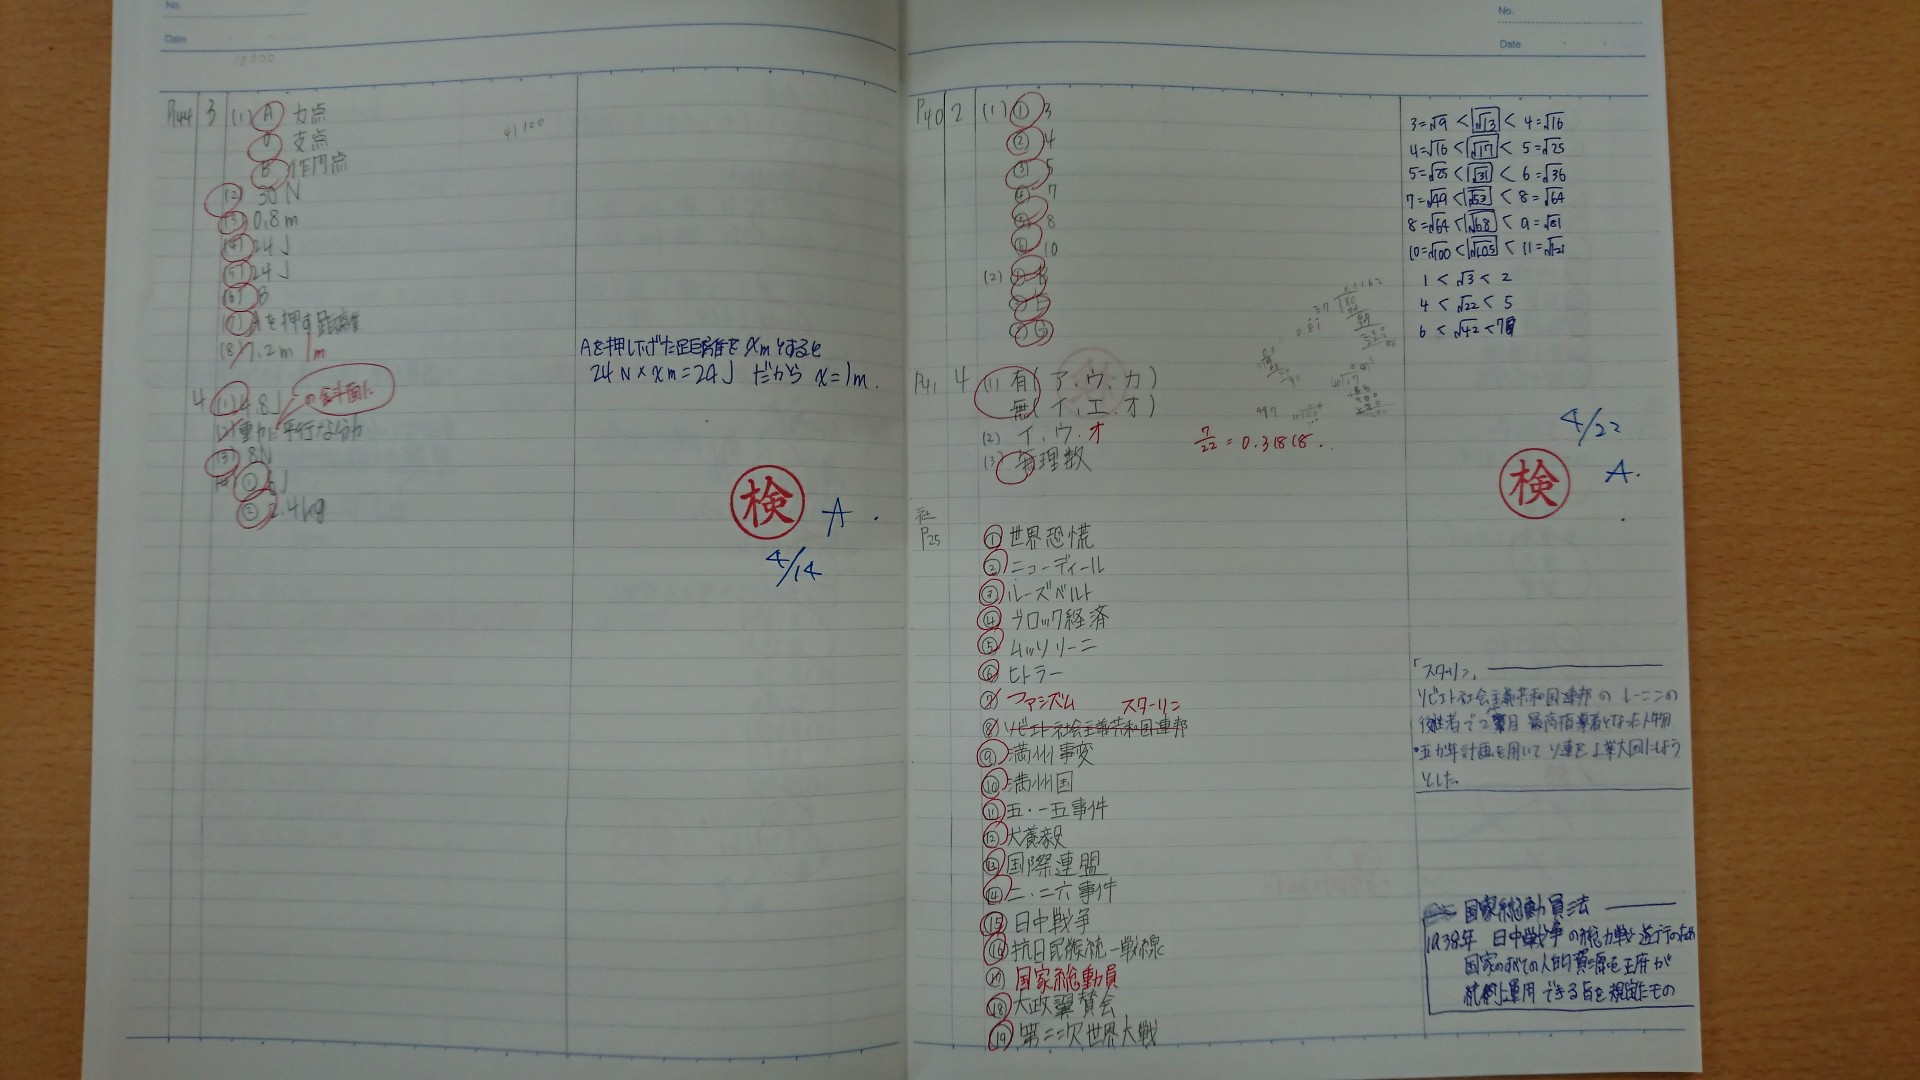 No.
Date
P44 3 (1) A 力点
O 支点
B 作用点
(2) 30N
(3) 0.8m
(4) 24J
(5) 24J
(6) B
(7) Aを押す距離
(8) 7.2m 1m
4 (1) 4.8J
(2) 重力に平行な分力
の斜面に
(3) 8N
①
② 2.4kg
41120
Aを押し下げた距離をxmとすると
24N×xm=24J だから x=1m.
検 A.
4/14
No.
Date
P40 2 (1) ① 3
② 4
③ 5
④ 7
⑤ 8
⑥ 10
(2)
P41 4 (1) 有(ア、ウ、カ)
無(イ、エ、オ)
(2) イ、ウ、オ
(3) 無理数
7/22=0.31818..
3=√9 < √13 < 4=√16
4=√16 < √17 < 5=√25
5=√25 < √31 < 6=√36
7=√49 < √53 < 8=√64
8=√64 < √68 < 9=√81
10=√100 < √105 < 11=√121
1 < √3 < 2
4 < √22 < 5
6 < √42 < 7
4/22
検 A.
社
P25
① 世界恐慌
② ニューディール
③ ルーズベルト
④ ブロック経済
⑤ ムッソリーニ
⑥ ヒトラー
⑦ ファシズム
スターリン
⑧ ソビエト社会主義共和国連邦
⑨ 満州事変
⑩ 満州国
⑪ 五・一五事件
⑫ 犬養毅
⑬ 国際連盟
⑭ 二・二六事件
⑮ 日中戦争
⑯ 抗日民族統一戦線
⑰ 国家総動員
⑱ 大政翼賛会
⑲ 第二次世界大戦
「スターリン」
ソビエト社会主義共和国連邦の レーニンの
後継者で2番目 最高指導者となった人物
・五か年計画を用いて ソ連を工業大国にしよう
とした。
国家総動員法
1938年 日中戦争の総力戦遂行のため
国家のすべての人的資源を政府が
統制上運用できる旨を規定したもの